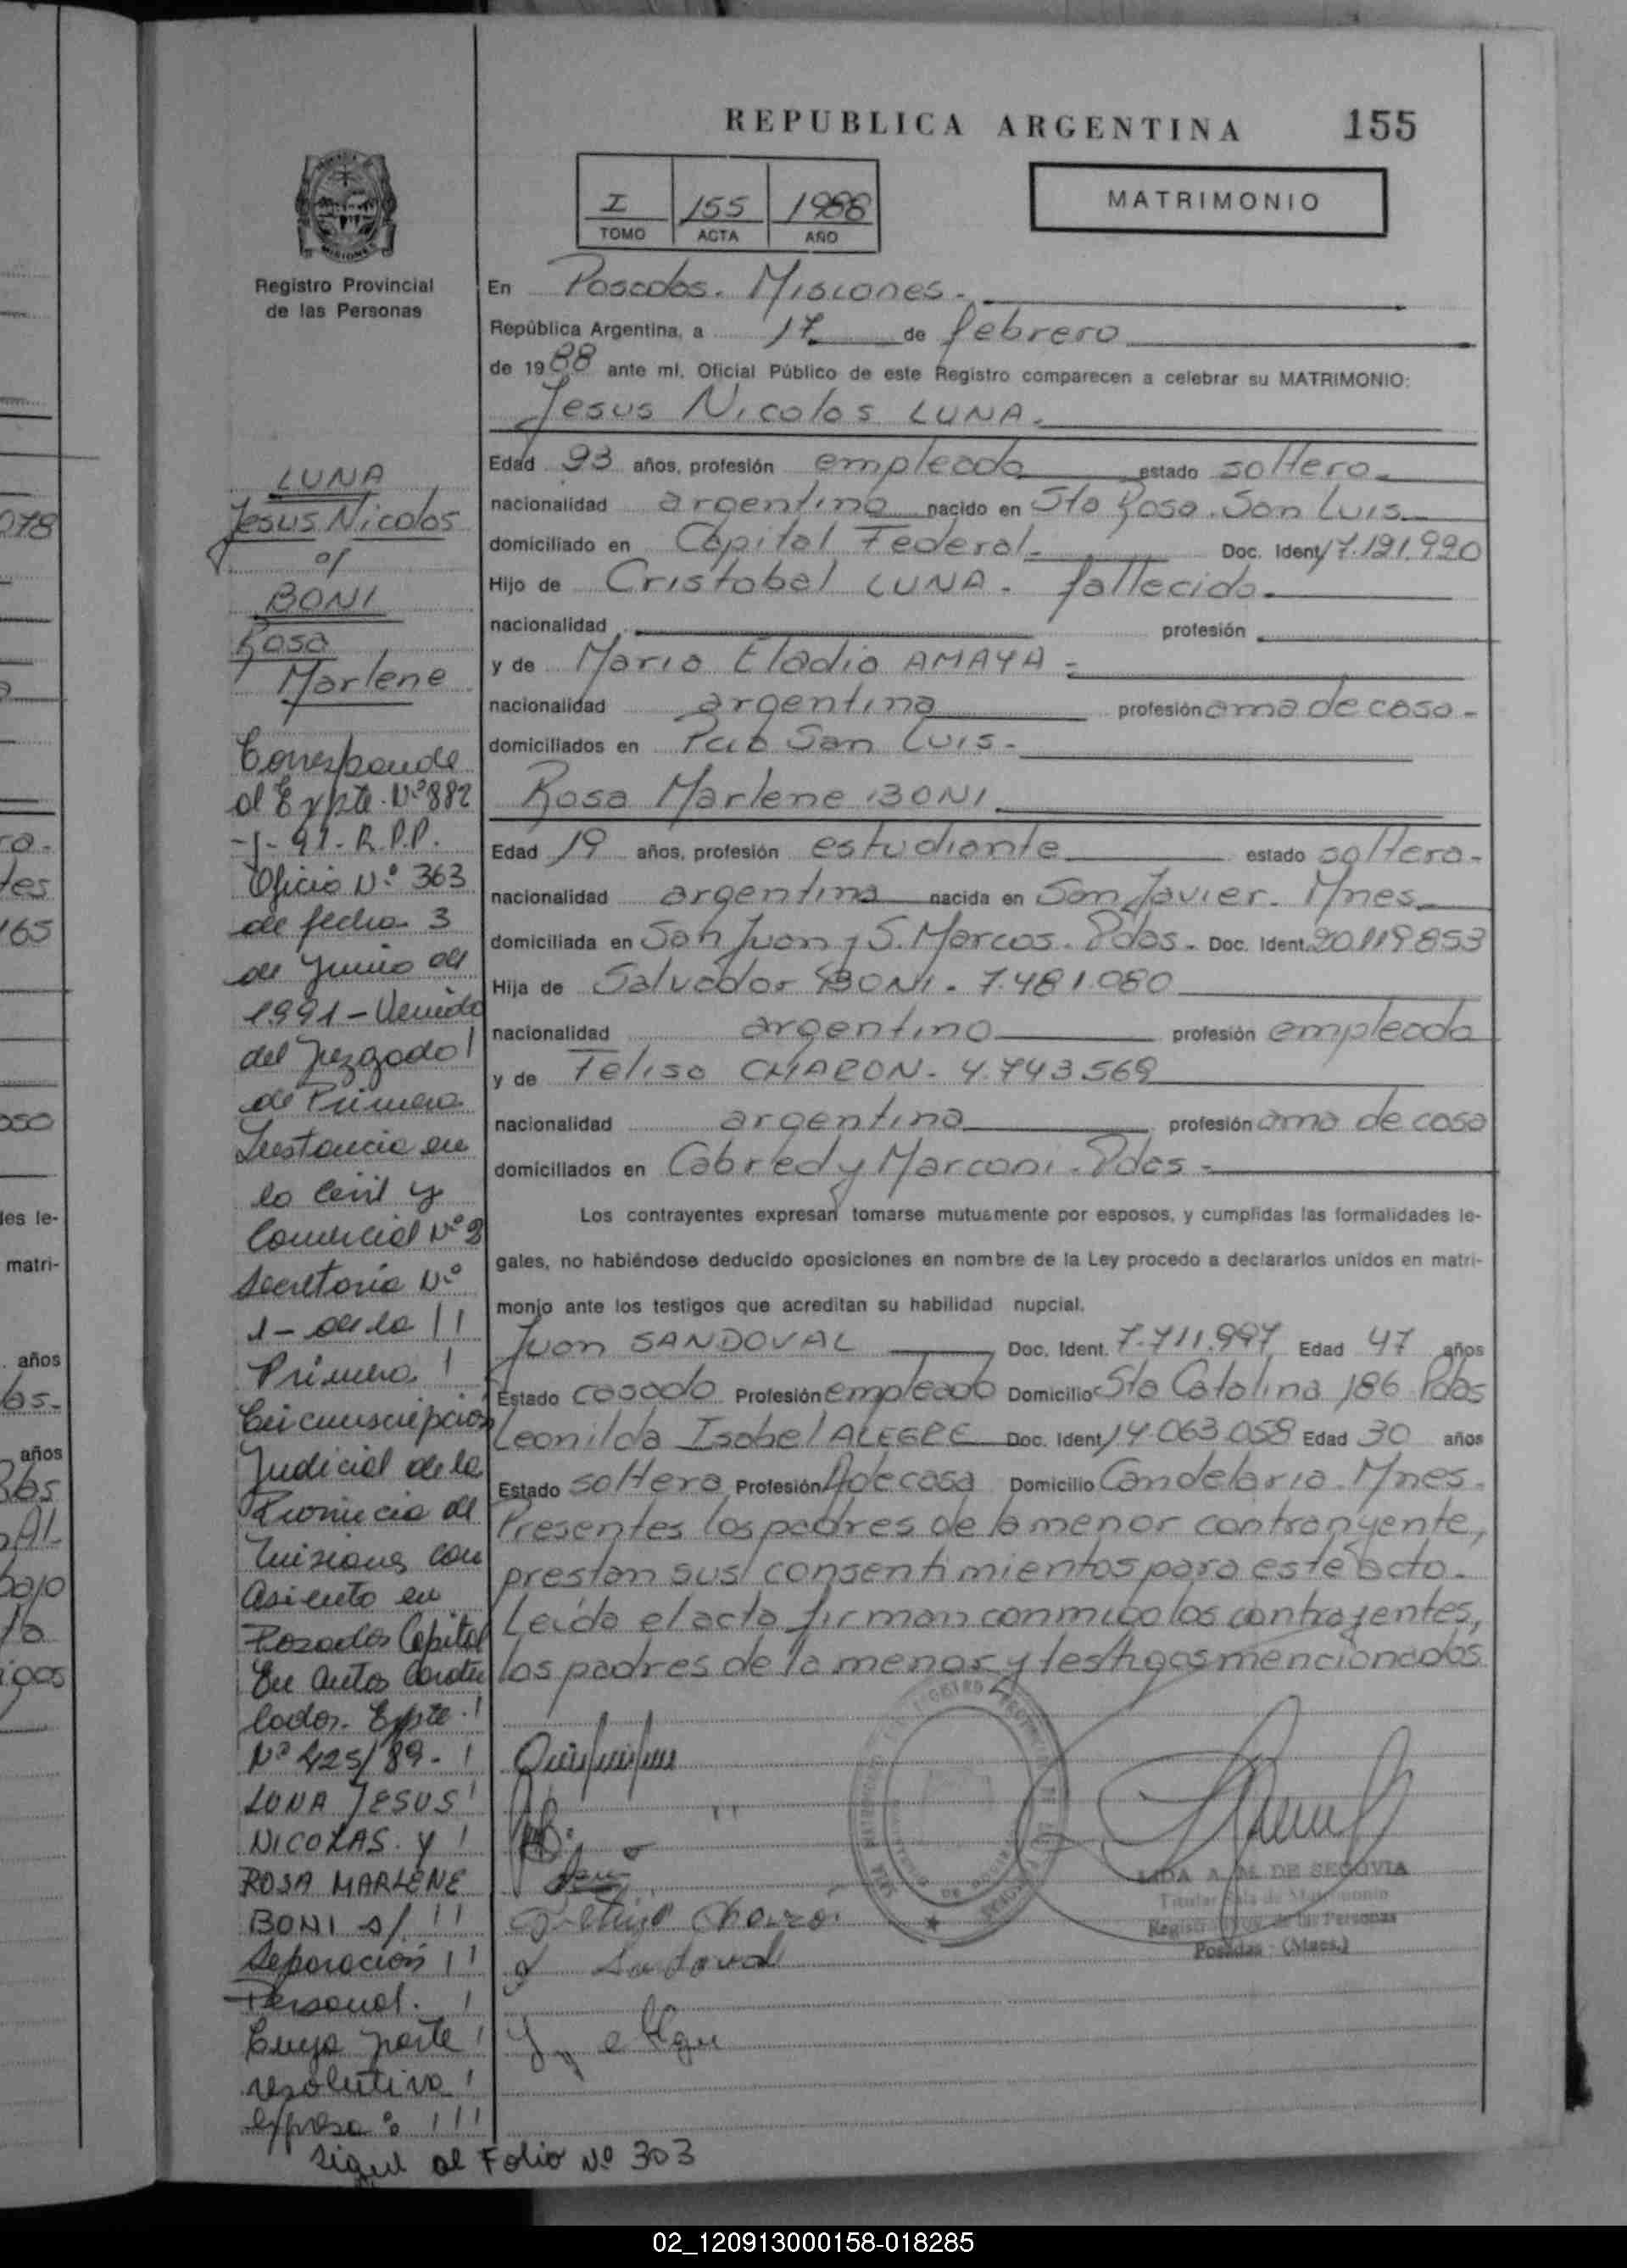 REPUBLICA ARGENTINA 155
MATRIMONIO
I 155 1988
TOMO ACTA AÑO
Registro Provincial
de las Personas
En Posadas. Misiones.
República Argentina, a 17 de febrero
de 1988 ante mi, Oficial Público de este Registro comparecen a celebrar su MATRIMONIO:
Jesus Nicolas LUNA.
Edad 23 años, profesión empleado estado soltero
nacionalidad argentina nacido en Sta Rosa. San Luis
domiciliado en Capital Federal. Doc. Ident. 17.121.920
Hijo de Cristobal LUNA. fallecido.
nacionalidad profesión
y de Maria Eladia AMAYA
nacionalidad argentina profesión ama de casa-
domiciliados en Pcia San Luis-
Rosa Marlene BONI
Edad 19 años, profesión estudiante estado soltera-
nacionalidad argentina nacida en San Javier. Mnes
domiciliada en San Juan y S. Marcos. Pdas. Doc. Ident. 20.119.853
Hija de Salvador BONI. 7.481.080
nacionalidad argentino profesión empleado
y de Felisa CHARON. 4.743.569
nacionalidad argentina profesión ama de casa
domiciliados en Cabred y Marconi. Pdas-
Los contrayentes expresan tomarse mutuamente por esposos, y cumplidas las formalidades le-
gales, no habiéndose deducido oposiciones en nombre de la Ley procedo a declararlos unidos en matri-
monio ante los testigos que acreditan su habilidad nupcial.
Juan SANDOVAL Doc. Ident. 7.711.997 Edad 47 años
Estado casado Profesión empleado Domicilio Sta Catalina 186 Pdas
Leonilda Isabel ALEGRE Doc. Ident. 14.063.058 Edad 30 años
Estado soltera Profesión A de casa Domicilio Candelaria. Mnes.
Presentes los padres de la menor contrayente,
prestan sus consentimientos para este acto.
Leída el acta firman conmigo los contrayentes,
los padres de la menor y testigos mencionados
LIDA A. M. DE SEGOVIA
Titular Sala de Matrimonio
Registro Prov. de las Personas
Posadas - (Mnes.)
LUNA
Jesus Nicolas
c/
BONI
Rosa
Marlene
Corresponde
al Expte. Nº 882
-J- 91- R.P.P.
Oficio Nº 363
de fecha 3
de Junio de
1991- Venido
del Juzgado
de Primera
Instancia en
lo Civil y
Comercial Nº 3
Secretaria Nº
1- de la
Primera
Circunscripcion
Judicial de la
Provincia de
Misiones con
asiento en
Posadas Capital
En autos Caratu
lados. Expte.
Nº 425/89-
LUNA JESUS
NICOLAS. y
ROSA MARLENE
BONI s/
Separación
Personal.
Cuya parte
resolutiva
expresa:
Sigue al Folio Nº 303
078
165
les le-
matri-
años
años
02_120913000158-018285